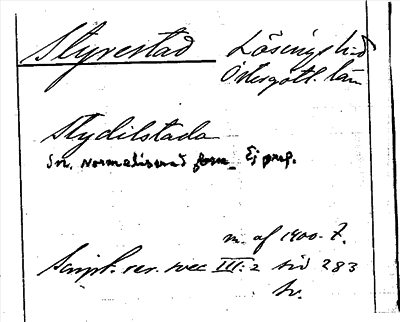 Styrestad Lösings hd
Östergötl. län
Stydilstada
Sv. Normaliserad form. Ej prep.
m. af 1400-t.
Script. rer. svec III:2 sid 283
Sv.